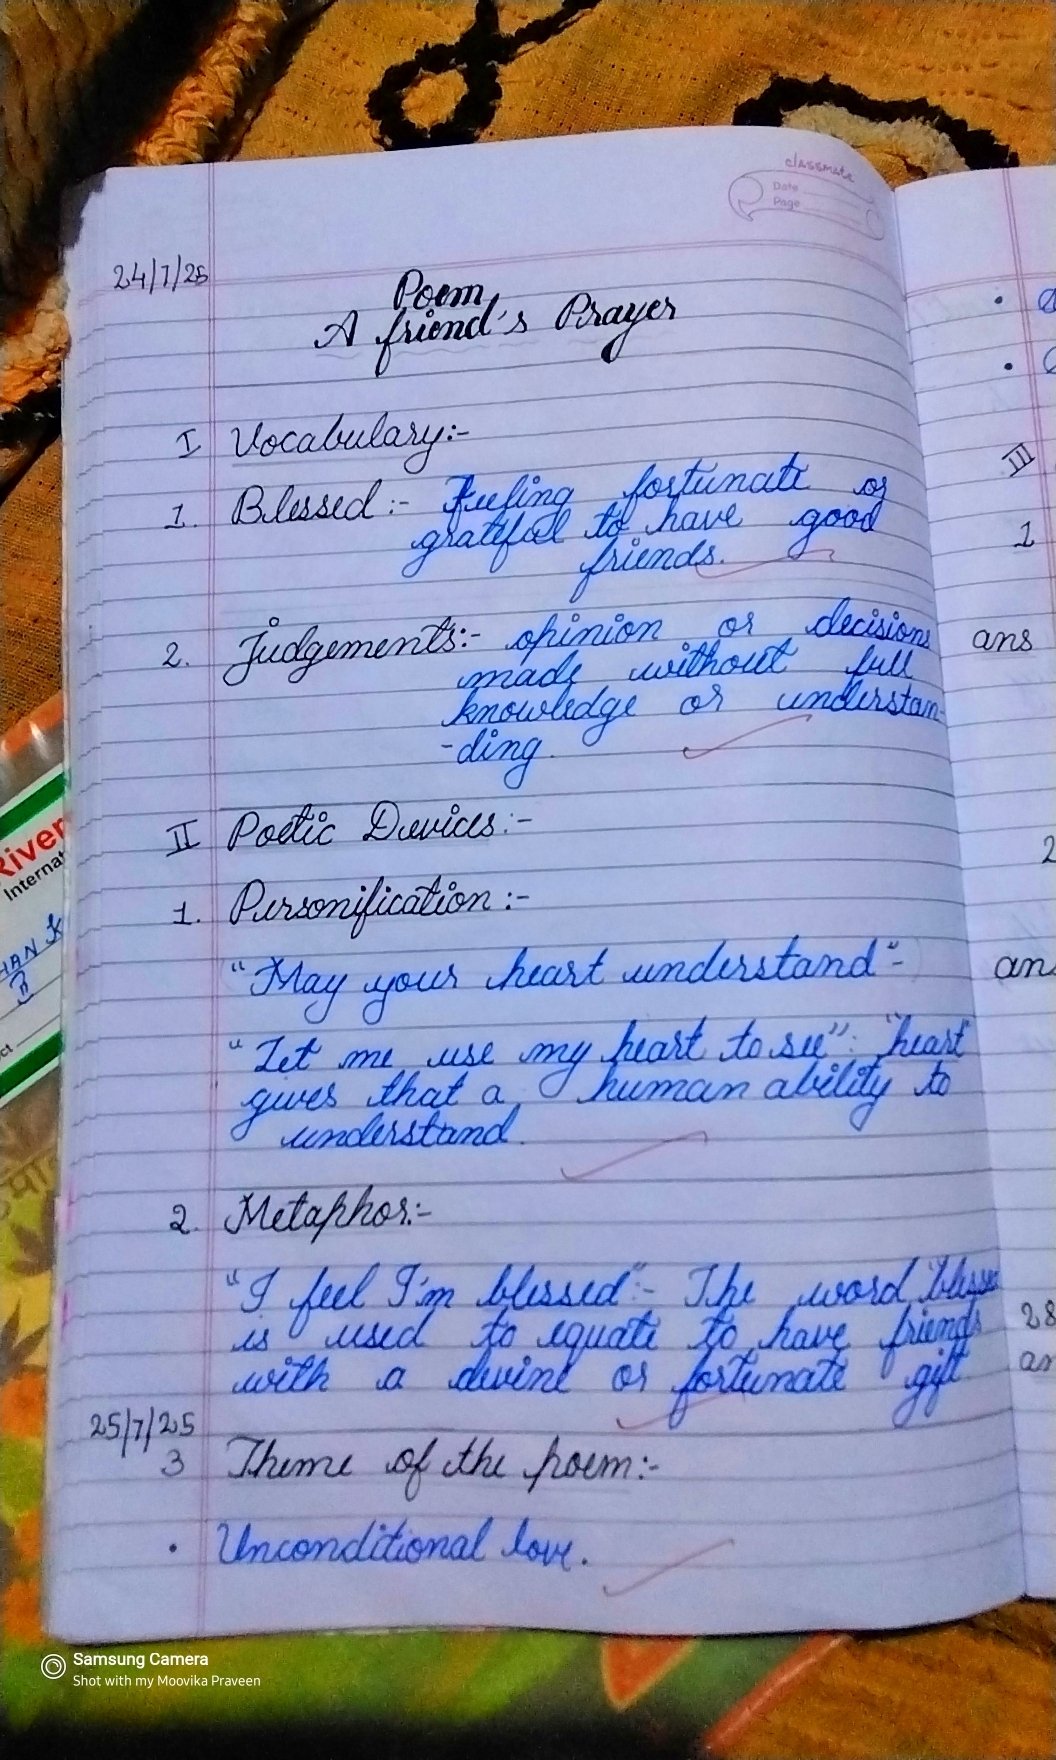 classmate
Date
Page
24/7/25
Poem
A friend's Prayer
I Vocabulary:-
1. Blessed :- Feeling fortunate or
grateful to have good
friends.
2. Judgements:- opinion or decisions
made without full
knowledge or understan-
-ding.
II Poetic Devices:-
1. Personification :-
"May your heart understand"-
"Let me use my heart to see": "heart
gives that a human ability to
understand.
2. Metaphor:-
"I feel I'm blessed"- The word
is used to equate to have friends
with a devine or fortunate gift
25/7/25
3 Theme of the poem:-
• Unconditional love.
III
1
ans
2
ans
28
River
Internat
HAN K
Samsung Camera
Shot with my Moovika Praveen